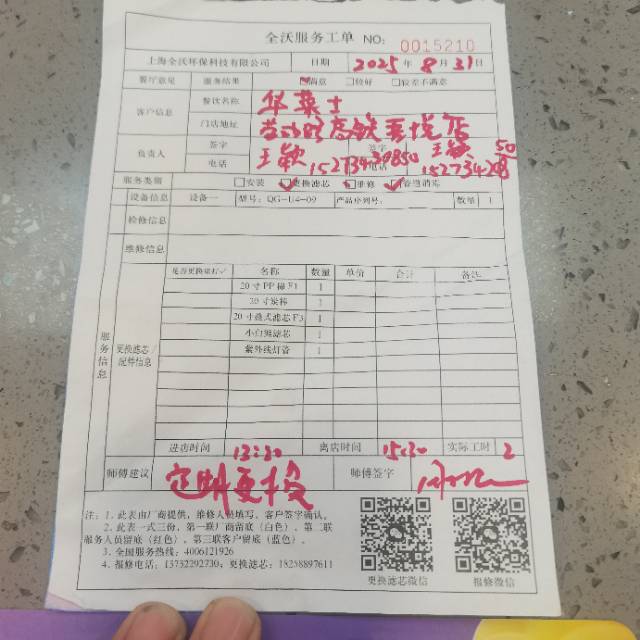 全沃服务工单 NO: 0015210
上海全沃环保科技有限公司 日期 2025 年 8 月 31 日
餐厅意见 服务结果 满意 较好 较差不满意
客户信息 餐饮名称 华莱士
门店地址
负责人 签字 王颖 签字 王颖
电话 15273439850 电话
服务类别 安装 更换滤芯 维修 管道消毒
设备信息 设备一 型号: QG-U4-09 产品序列号: 数量 1
检修信息
维修信息
服务信息 更换滤芯/配件信息
是否更换请打✓ 名称 数量 单价 合计 备注
20寸PP棉F1 1
20寸炭棒 1
20寸叠式滤芯F3 1
小白熊滤芯 1
紫外线灯管 1
进店时间 13:30 离店时间 15:30 实际工时 2
师傅建议 定期更换 师傅签字
注: 1. 此表由厂商提供, 维修人员填写, 客户签字确认。
2. 此表一式三份, 第一联厂商留底 (白色)、第二联
服务人员留底 (红色)、第三联客户留底 (蓝色)。
3. 全国服务热线: 4006121926
4. 报修电话: 13732292730; 更换滤芯: 18258897611
更换滤芯微信 报修微信